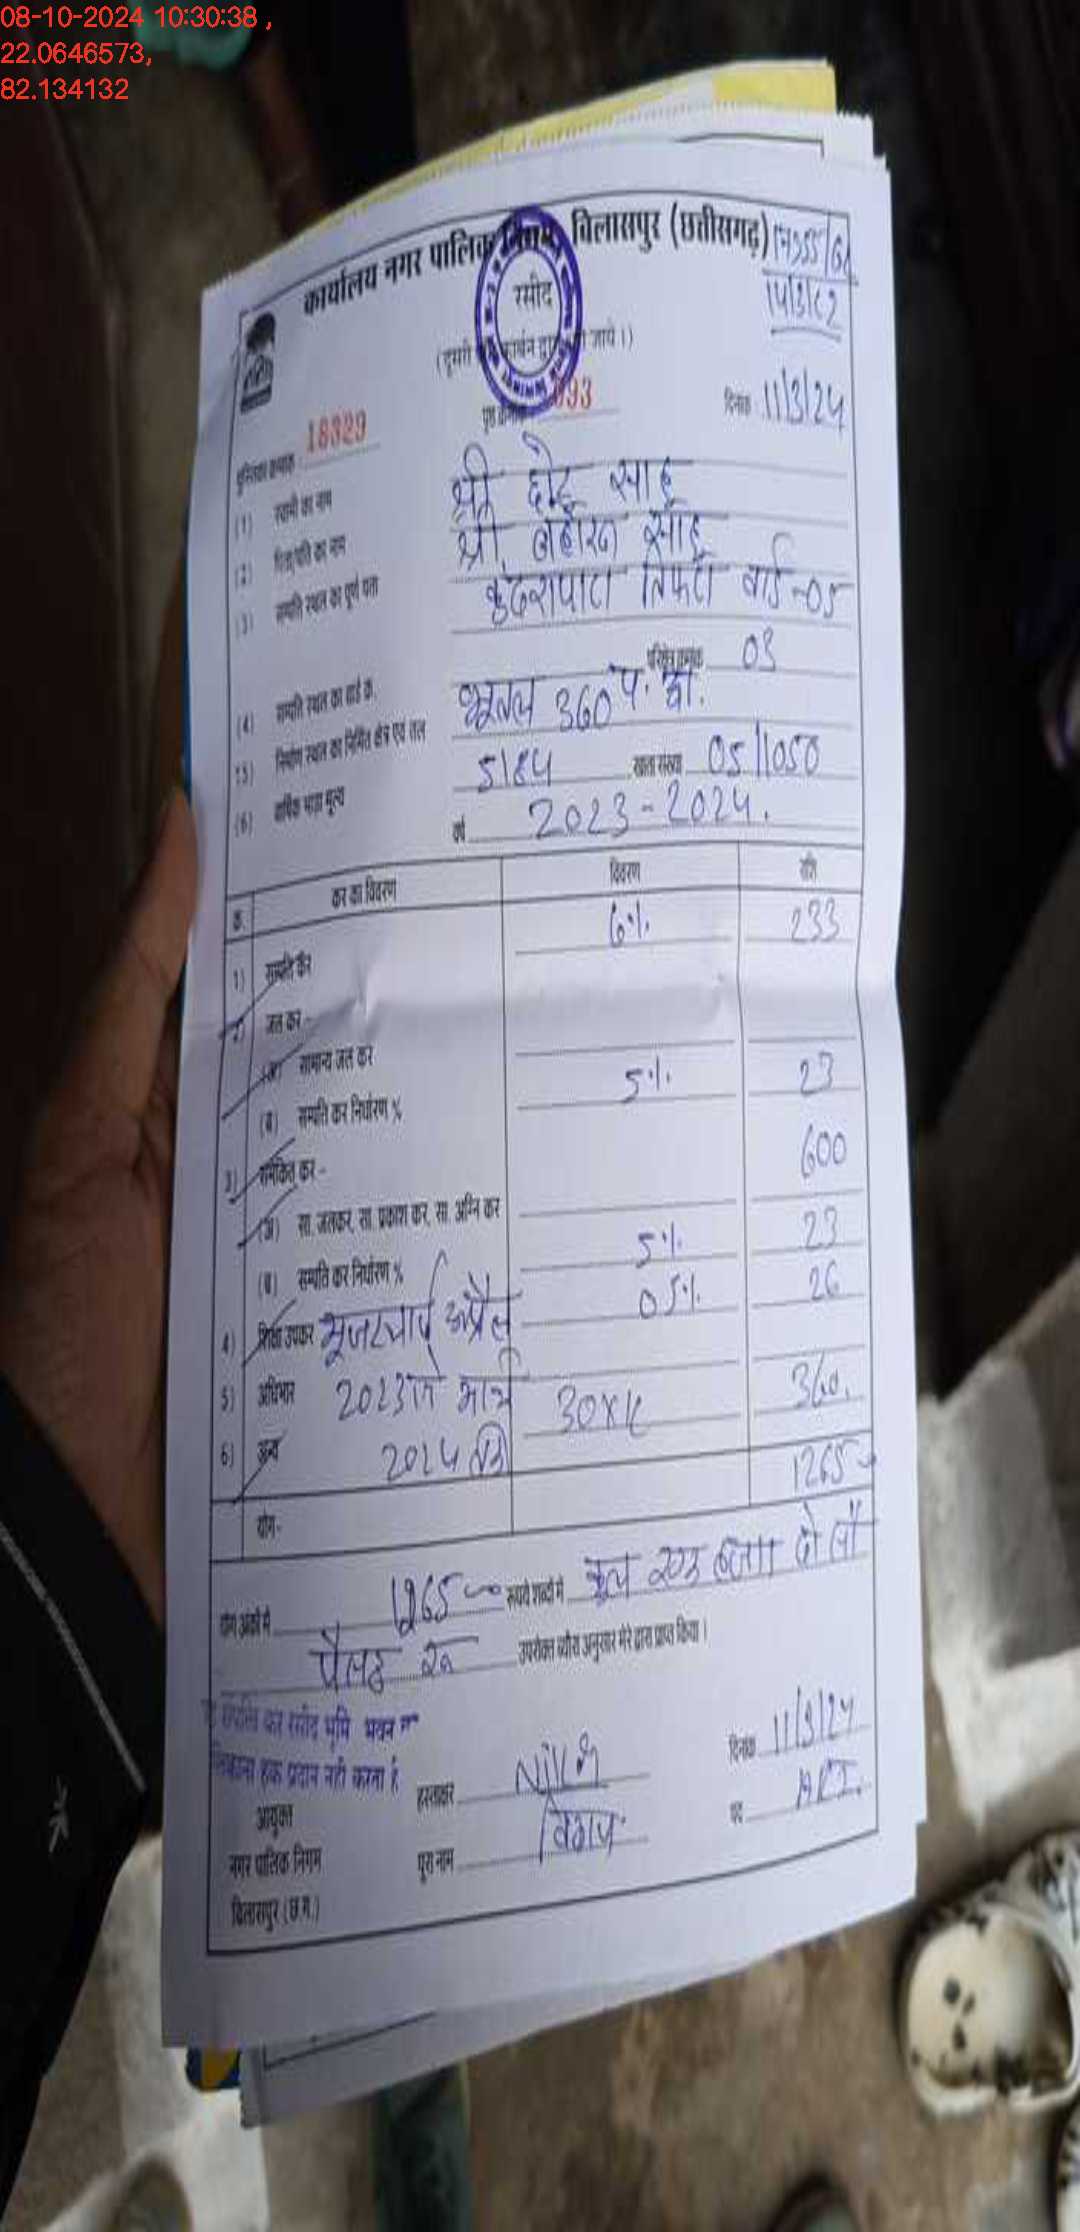 08-10-2024 10:30:38 ,
22.0646573,
82.134132
कार्यालय नगर पालिक निगम, बिलासपुर (छत्तीसगढ़)
रसीद
14/3/
(दूसरी जाये।)
पुस्तिका क्रमांक 18329 पृष्ठ क्रमांक 093 दिनांक 11/3/24
(1) स्वामी का नाम श्री छोटू साहू
(2) पिता/पति का नाम श्री साहू
(3) सम्पत्ति स्थल का पूर्ण पता तिफरा वार्ड-05
(4) सम्पत्ति स्थल का वार्ड क्र. परिक्षेत्र क्रमांक 03
(5) निर्माण स्थल का निर्मित क्षेत्र एवं तल भूतल 360
(6) वार्षिक भाड़ा मूल्य 5184 खाता संख्या 05/1050
वर्ष 2023-2024.
क्र. कर का विवरण विवरण राशि
1) सम्पत्ति कर 6% 233
2) जल कर -
(अ) सामान्य जल कर
(ब) सम्पत्ति कर निर्धारण % 5% 23
3) समेकित कर - 600
(अ) सा. जलकर, सा. प्रकाश कर, सा. अग्नि कर
(ब) सम्पति कर निर्धारण % 5% 23
4) शिक्षा उपकर यूजरचार्ज अप्रैल 05% 26
5) अधिभार 2023 से मार्च 30x12 360.
6) अन्य 2024 तक
योग- 1265
योग अंकों में 1265 रूपये शब्दों में कुल एक हजार दो सौ
पैंसठ रू उपरोक्त ब्यौरा अनुसार मेरे द्वारा प्राप्त किया।
सम्पत्ति कर रसीद भूमि भवन
हक प्रदान नहीं करता है
आयुक्त हस्ताक्षर दिनांक 11/3/24
नगर पालिक निगम पूरा नाम पद ARI.
बिलासपुर (छ.ग.)